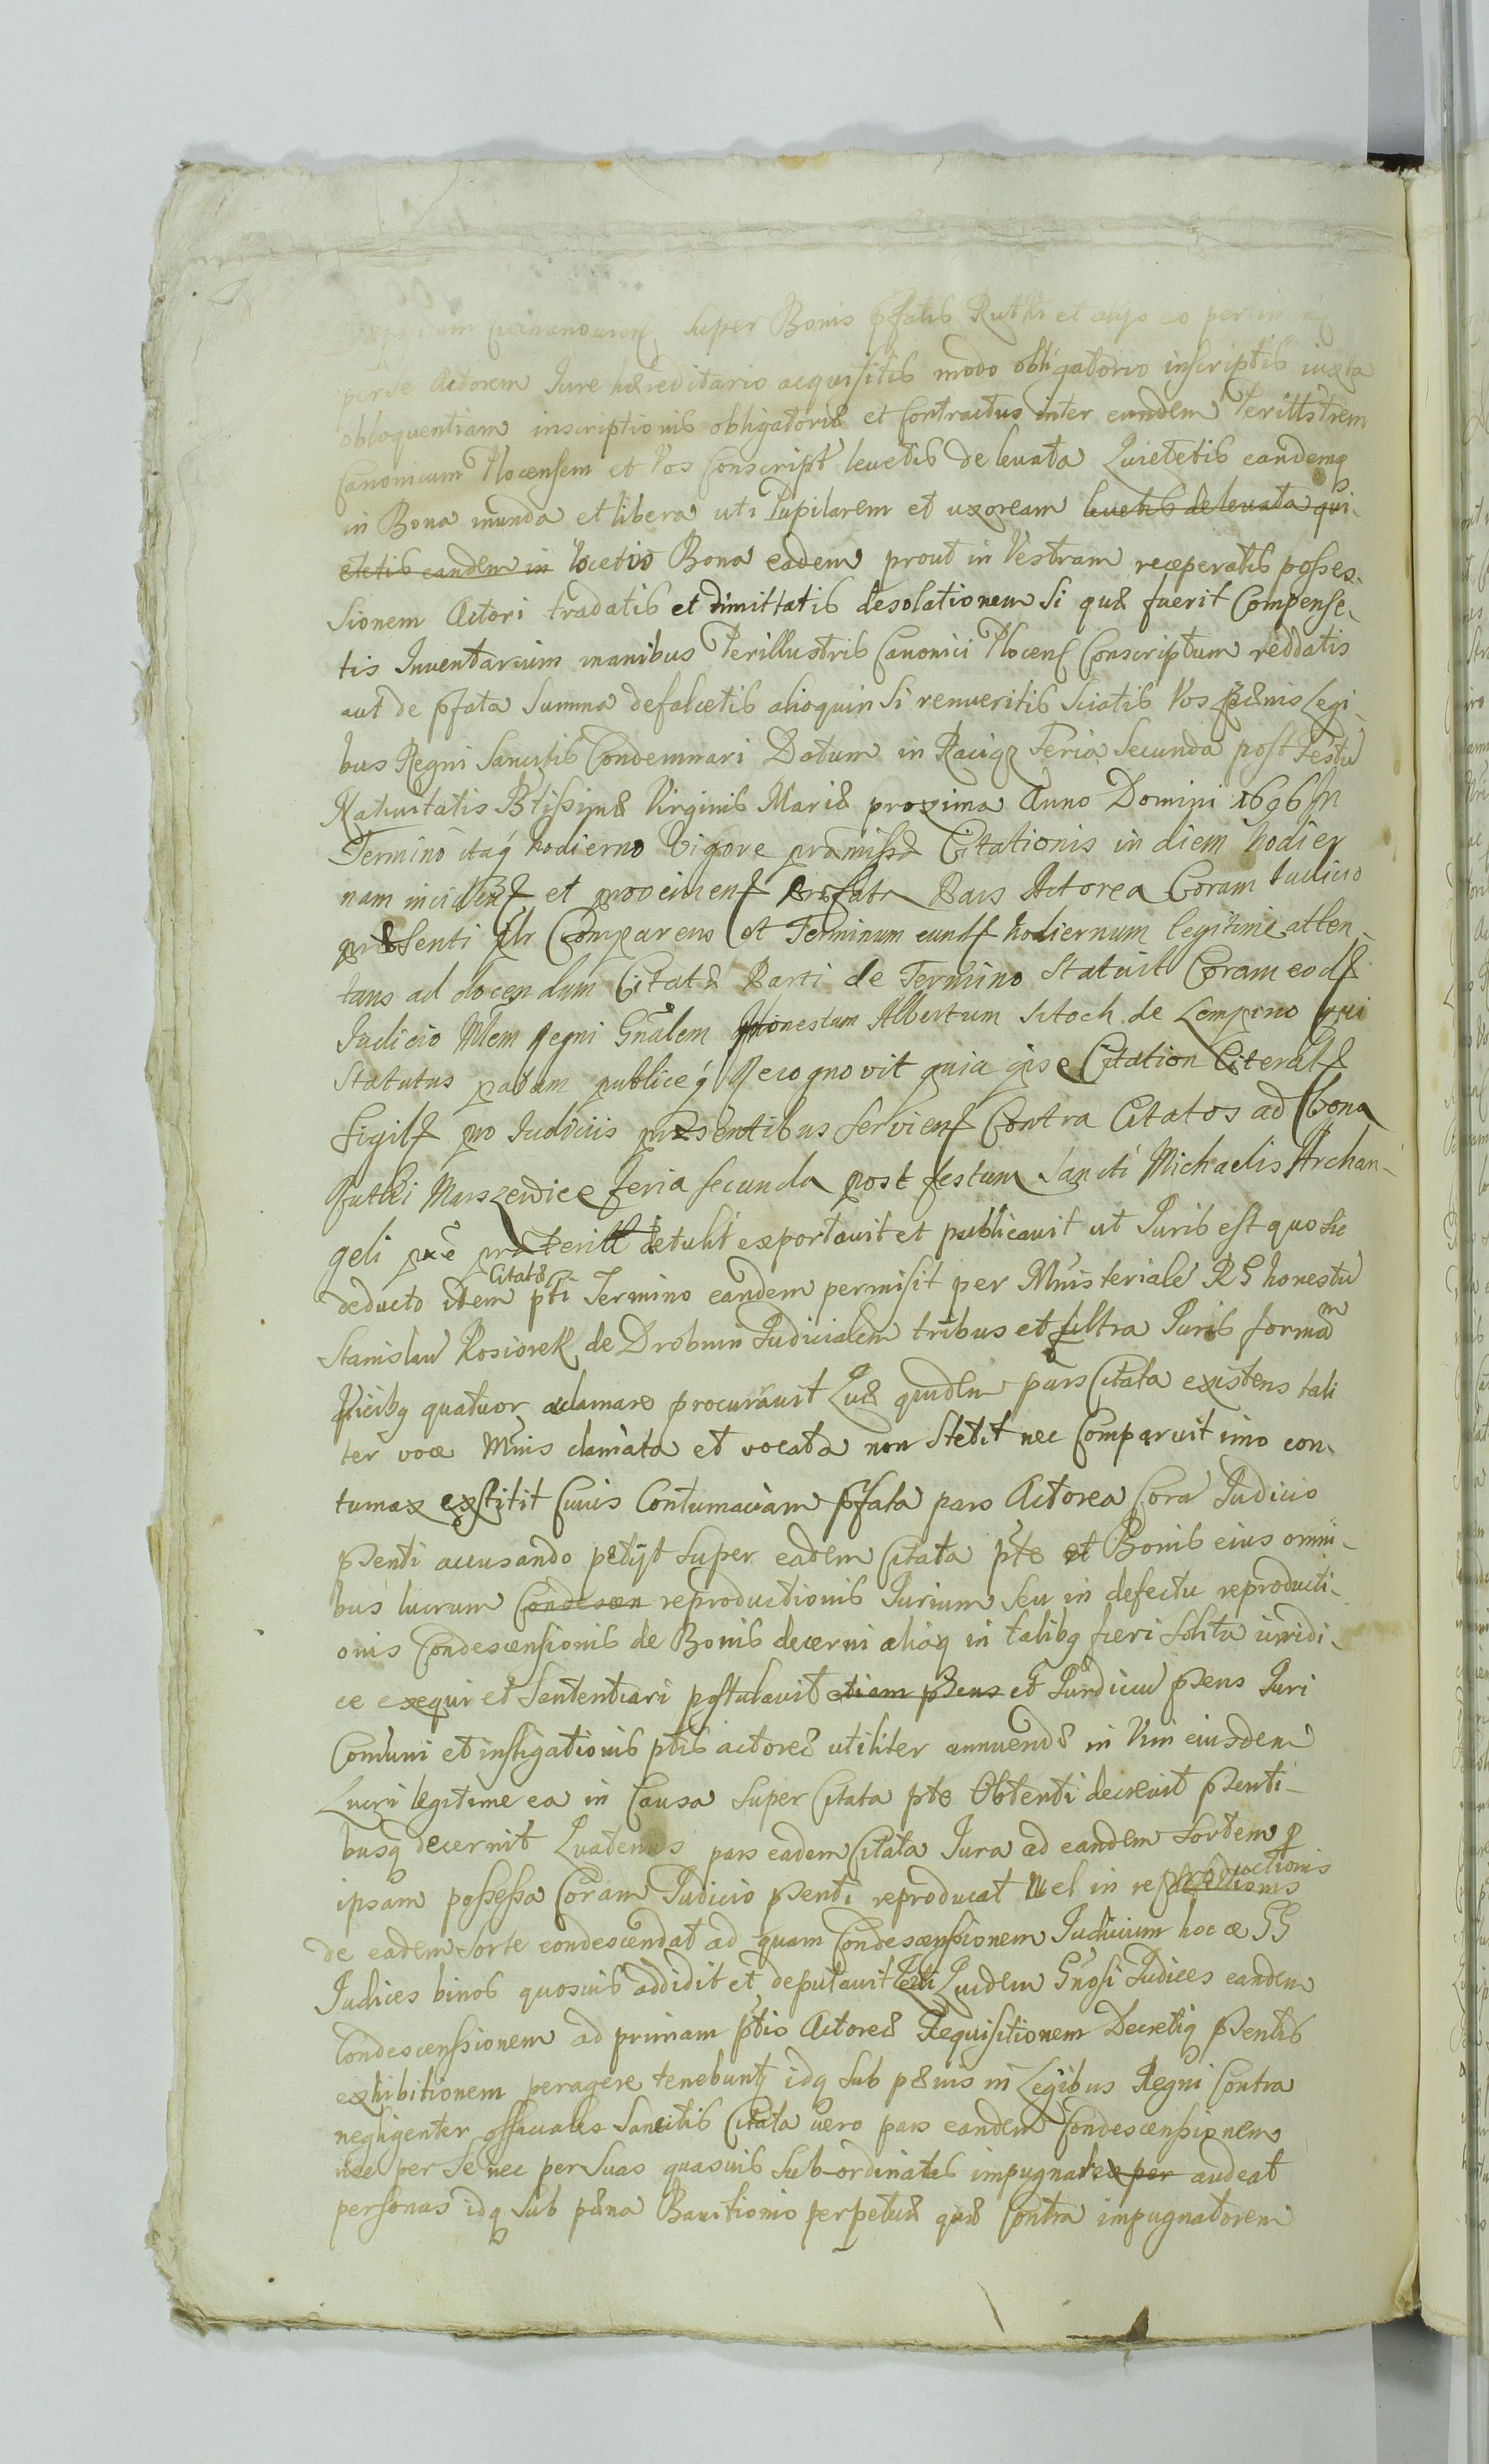 super Bonis pfatis Rutki et alys eo
per se Actorem Jure hæreditario acquisitis modo obligatorio inscriptis iuxta
obloquentiam inscriptionis obligatoriæ et Contractus inter eundem Perillstrem
Canonicum Plocensem et Vos Conscript levetis de levata Quietetis eandemq
in Bona munda et libera uti Pupilarem et uxoream levetis de levata qui-
etetis eandem in locetis Bona eadem prout in Vestram receperatis posses-
sionem Actori tradatis et dimittatis desolationem si quæ fuerit Compense-
tis Inventarium manibus Perillustris Canonici Plocens Conscriptum reddatis
aut de pfata Summa defalcetis alioquin si renueritis Sciatis Vos pænis Legi-
bus Regni Sancitis Condemnari Datum in Raciąz Feria Secunda post Festũ
Nativitatis Btissimæ Virginis Mariæ proxima Anno Domini 1696 In
Termino itaq hodierno Vigore præmissæ Citationis in diem hodier
nam inciden et provenien Præfata Pars Actorea Coram Iudicio
præsenti plr Comparens et Terminum eund hodiernum legitime atten-
tans ad docendum Citatæ Parti de Termino Statuit Coram eod
Iudicio Mlem Regni Gnalem honestum Albertum Stoch de Lempino qui
Statutus palam publiceq Recognovit quia ipse Citation Literal
Sigil pro Iudiciis præsentibus servien Contra Citatos ad Bona
Rutki Marszewice feria secunda post festum Sancti Michaelis Archan-
geli pxe præterit detulit exportavit et publicavit ut Juris est quo sic
deducto idem Citatæ pti Termino eandem permisit per Ministeriale RG honestũ
Stanislaw Kosiorek de Drobnin Judicialem tribus et ultra Juris formam
Vicibq quatuor aclamare procuravit Quæ quidem pars Citata existens tali
ter voce Mnis clamata et vocata non Stetit nec Comparuit imo con-
tumax extitit Cuius Contumaciam pfata pars Actorea Corã Judicio
psenti accusando petyt super eadem Citata pte et Bonis eius omni-
bus lucrum Condescen reproductionis Jurium seu in defectu reproducti-
onis Condescensionis de Bonis decerni aliaq in talibq fieri solita iuridi-
ce exequi et Sententiari postulavit etiam psens et Judiciũ psens Juri
Comũni et instigationis ptis actoreæ utiliter annuendæ in Vim eiusdem
Lucri legitime ea in Causa super Citata pte Obtenti decrevit psenti-
busq decernit Quatenus pars eadem Citata Jura ad eandem Sortem p
ipsam possessa Coram Judicio psenti reproducat vel in reproductionis
de eadem sorte condescendat ad quam Condescensionem Judicium hoc æ GG
Iudices binos quosvis addidit et deputavit Quidem Gnosi Judices eandem
Condescenssionem ad primam ptis Actoreæ Requisitionem Decretiq psentis
exhibitionem peragere tenebunt idq sub pænis in Legibus Regni Contra
negligenter officiales Sancitis Citata vero pars eandem Condescenssionem
nec per se nec per suas quasvis sub-ordinatas impugnare per audeat
personas idq sub pæna Banitionis perpetuæ quæ Contra impugnatorem